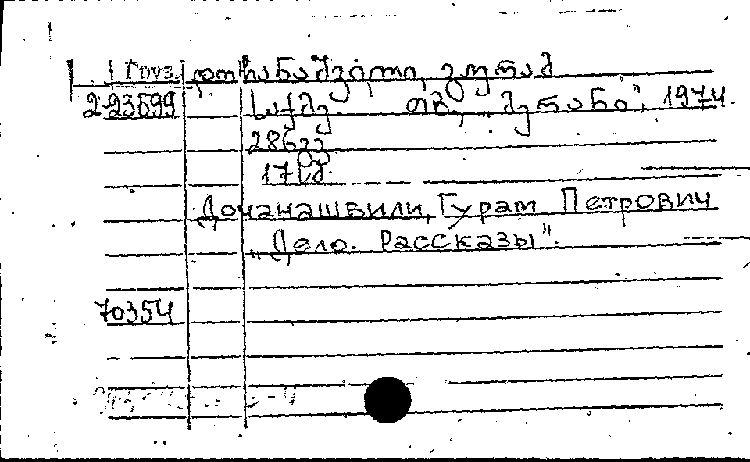 Груз. დოჩანაშვილი, გურამ
2-23599 საქმე. თბ., „მერანი", 1974.
286გვ
17სმ.
Дочанашвили, Гурам Петрович
„Дело. Рассказы".
70354